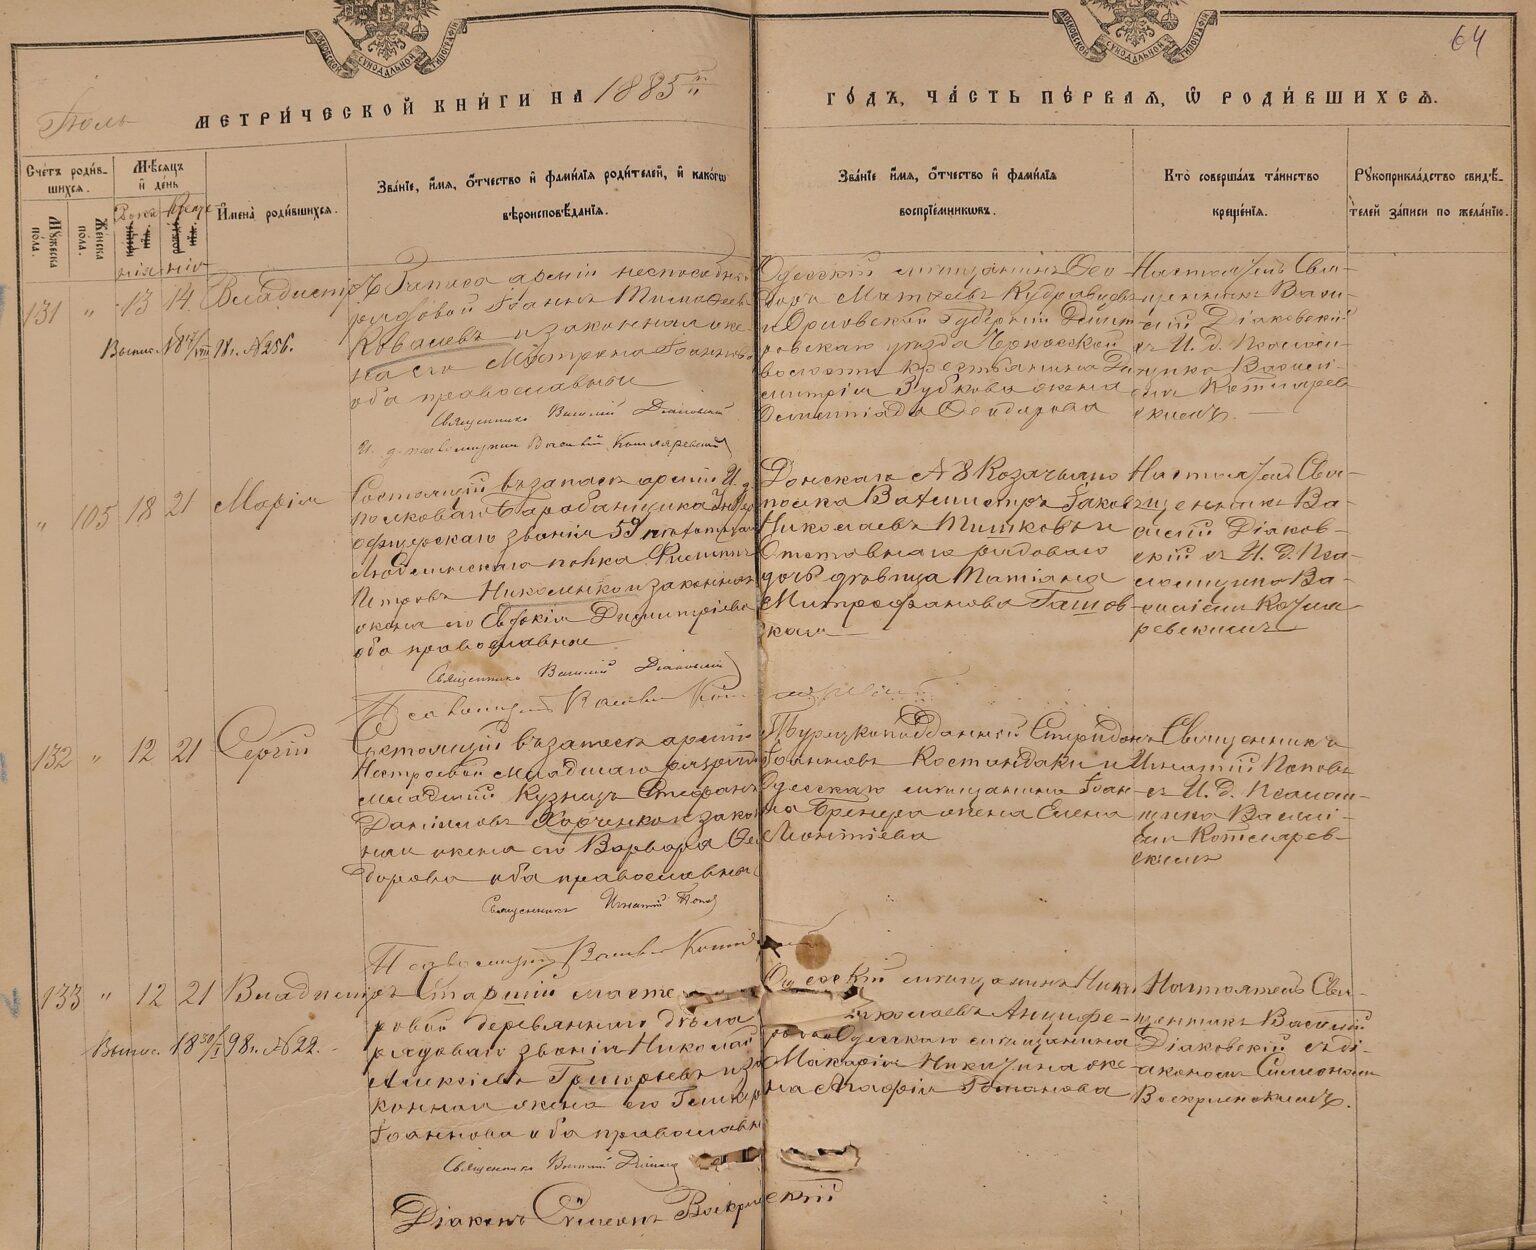 МОСКОВСКОЙ СѴНОДАЛЬНОЙ ТИПОГРАФІИ
МОСКОВСКОЙ СѴНОДАЛЬНОЙ ТИПОГРАФІИ
64
МЕТРИ́ЧЕСКОЙ КНИ́ГИ НА 1885
ГО́ДЪ, ЧА́СТЬ ПЕ́РВАЯ, Ѡ РОДИ́ВШИХСЯ.
Счётъ роди́в-
шихся.
Мѣ́сяцъ
и҆ де́нь
И҆мена̀ роди́вшихся.
Зва́нїе, и҆́мя, ѻ҆́тчество и҆ фами́лїя роди́телей, и҆ како́гѡ
вѣроисповѣ́данїя.
Зва́нїе и҆́мя, ѻ҆́тчество и҆ фами́лїя
воспрїе́мникѡвъ.
Кто̀ соверша́лъ та́инство
креще́нїя.
Рꙋкоприкла́дство свидѣ́-
телей за́писи по жела́нїю.
Мꙋ́жеска
по́ла.
Же́нска
по́ла.
131 " 13 14 Владимиръ
Запаса арміи
рядовой Іоаннъ Тимофеевъ
Ковалевъ и законная же-
на его Матрена Іоаннова
оба православные
Священникъ Василій Діаковскій
И. д. псаломщика Василій Котляревскій
Одесскій мещанинъ Ѳео-
доръ Матвеевъ Кудрявцевъ
и Орловской Губерніи Дмит-
ровскаго уезда
волости крестьянина Ди-
митрія Зубкова жена
Ѳеодорова
Настоятель Свя-
щенникъ Васи-
лій Діаковскій
съ И. д. Псалом-
щика Василі-
емъ Котлярев-
скимъ.
Выпис. № 256.
" 105 18 21 Марія
Состоящій въ запасе арміи И. д.
полковаго Барабанщика Унтеръ
офицерскаго званія 59 пехотнаго
Люблинскаго полка Филиппъ
Петровъ Николенко и законная
жена его Евдокія Димитріева
оба православные
Священникъ Василій Діаковскій
Псаломщикъ Василій Котляревскій
Донскаго № 8 Козачьяго
полка Вахмистръ Іаковъ
Николаевъ Тишковъ и
Отставнаго рядоваго
дочь девица Татіана
Митрофанова
Настоятель Свя-
щенникъ Ва-
силій Діаков-
скій съ И. д. Пса-
ломщика Ва-
силіемъ Котля-
ревскимъ
132 " 12 21 Сергій
Состоящій въ запасе арміи
Нестроевой младшаго разряда
младшій Кузнецъ Стефанъ
Даніиловъ Харченко и закон-
ная жена его Варвара Ѳео-
дорова оба православные
Священникъ Игнатій Поповъ
Псаломщикъ Василій Котляревскій
Турецкоподданный Спиридонъ
Іоанновъ Костандаки и
Одесскаго мещанина Іоан-
на жена Елена
Леонтіева
Священникъ
Игнатій Поповъ
съ И. д. Псалом-
щика Василі-
емъ Котлярев-
скимъ
133 " 12 21 Владимиръ
Старшій масте-
ровой деревяннаго дела
рядоваго званія Николай
Алексіевъ Григорьевъ и за-
конная жена его
Іоаннова оба православные
Священникъ Василій Діаковскій
Діаконъ Сѵмеонъ Воскресенскій
Одесскій мещанинъ Нико-
лай Николаевъ Анцифе-
ровъ и Одесскаго мещанина
Макарія Никитина же-
на Агафія Романова
Настоятель Свя-
щенникъ Василій
Діаковскій съ ді-
акономъ Сѵмеономъ
Воскресенскимъ.
Выпис. 98 г. № 22.